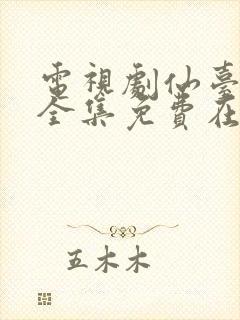 電視劇仙臺
全集免費在
五木木